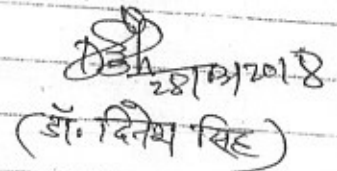 28/03/2018
(डॉ. दिनेश सिंह)